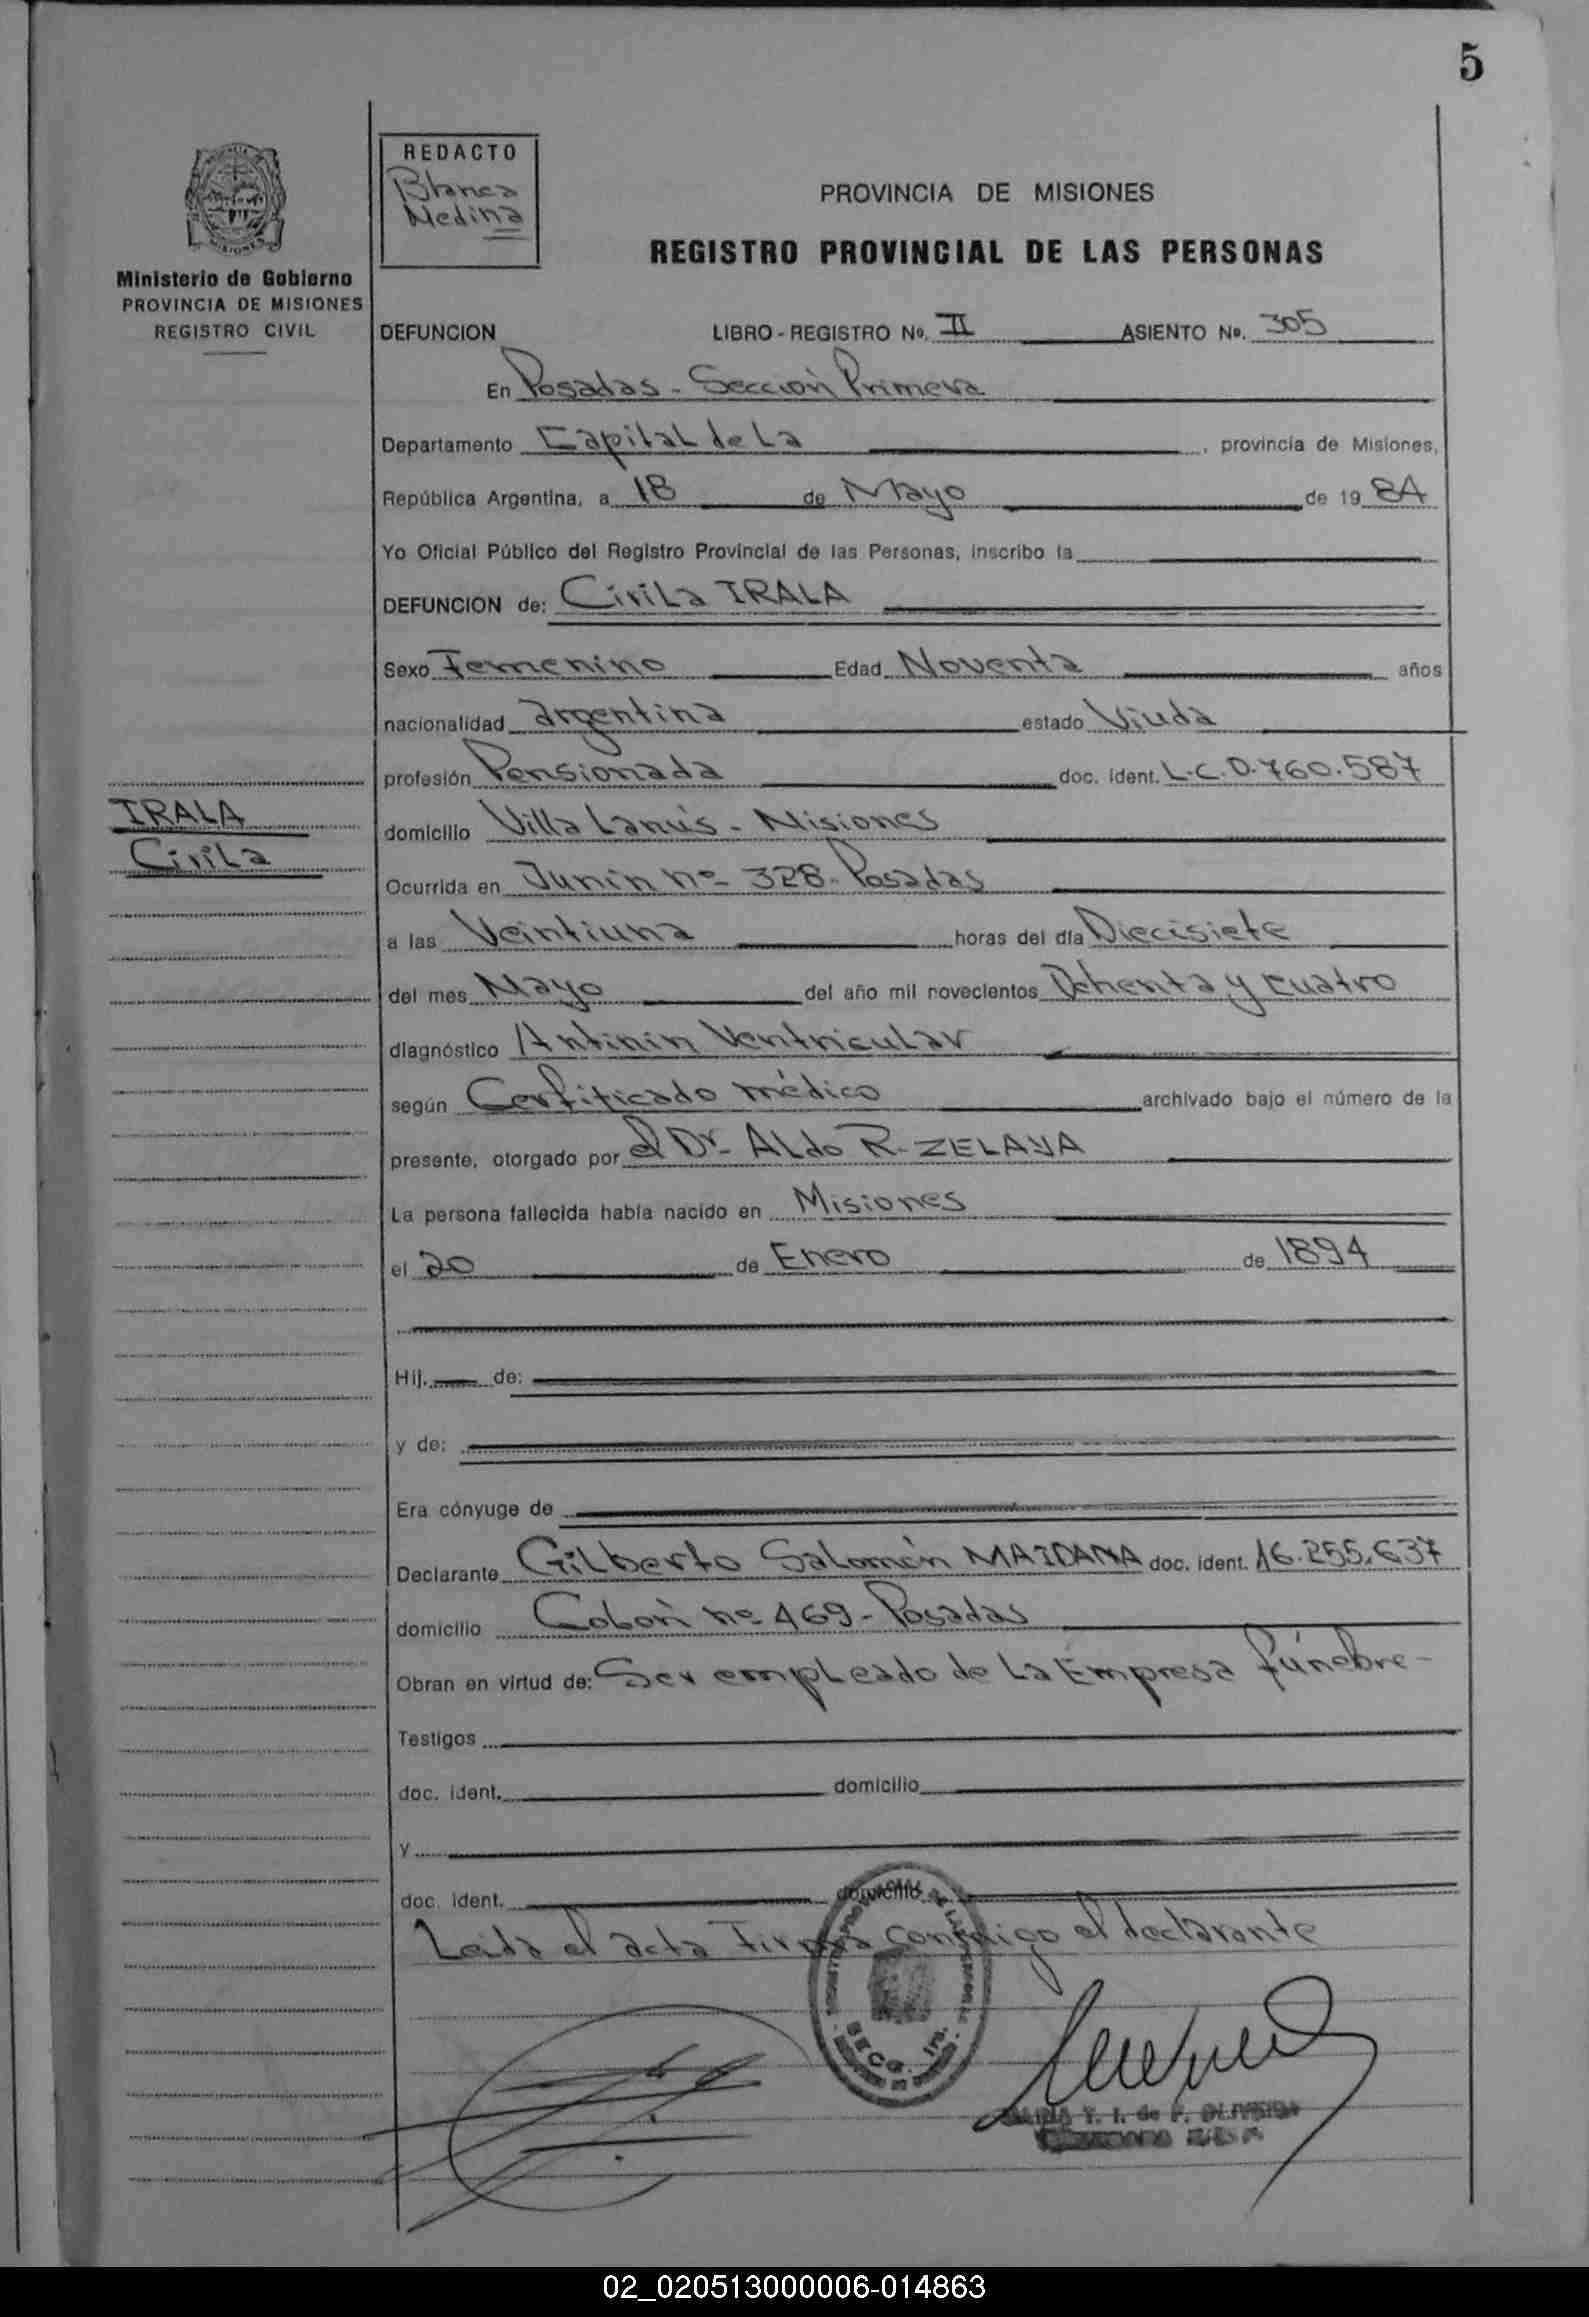 5
REDACTO
Blanca
Medina
PROVINCIA DE MISIONES
REGISTRO PROVINCIAL DE LAS PERSONAS
Ministerio de Gobierno
PROVINCIA DE MISIONES
REGISTRO CIVIL
DEFUNCION LIBRO-REGISTRO No. II ASIENTO No. 305
En Posadas - Sección Primera
Departamento Capital de La, provincia de Misiones,
República Argentina, a 18 de Mayo de 1984
Yo Oficial Público del Registro Provincial de las Personas, inscribo la
DEFUNCION de: Cirila IRALA
Sexo Femenino Edad Noventa años
nacionalidad argentina estado Viuda
profesión Pensionada doc. ident. L.C.0.760.587
IRALA
Cirila
domicilio Villa Lanús - Misiones
Ocurrida en Junín nº 328. Posadas
a las Veintiuna horas del día Diecisiete
del mes Mayo del año mil novecientos Ochenta y cuatro
diagnóstico Ventricular
según Certificado médico archivado bajo el número de la
presente, otorgado por el Dr. Aldo R. ZELAYA
La persona fallecida había nacido en Misiones
el 20 de Enero de 1894
Hij. de:
y de:
Era cónyuge de
Declarante Gilberto Salomón MAIDANA doc. ident. 16.255.637
domicilio Colón nº 469 - Posadas
Obran en virtud de: Ser empleado de La Empresa fúnebre -
Testigos
doc. ident. domicilio
y
doc. ident. domicilio
Leída el acta Firma conmigo el declarante
SECC. 1ra.
MARIA T. I. de F. OLIVEIRA
02_020513000006-014863